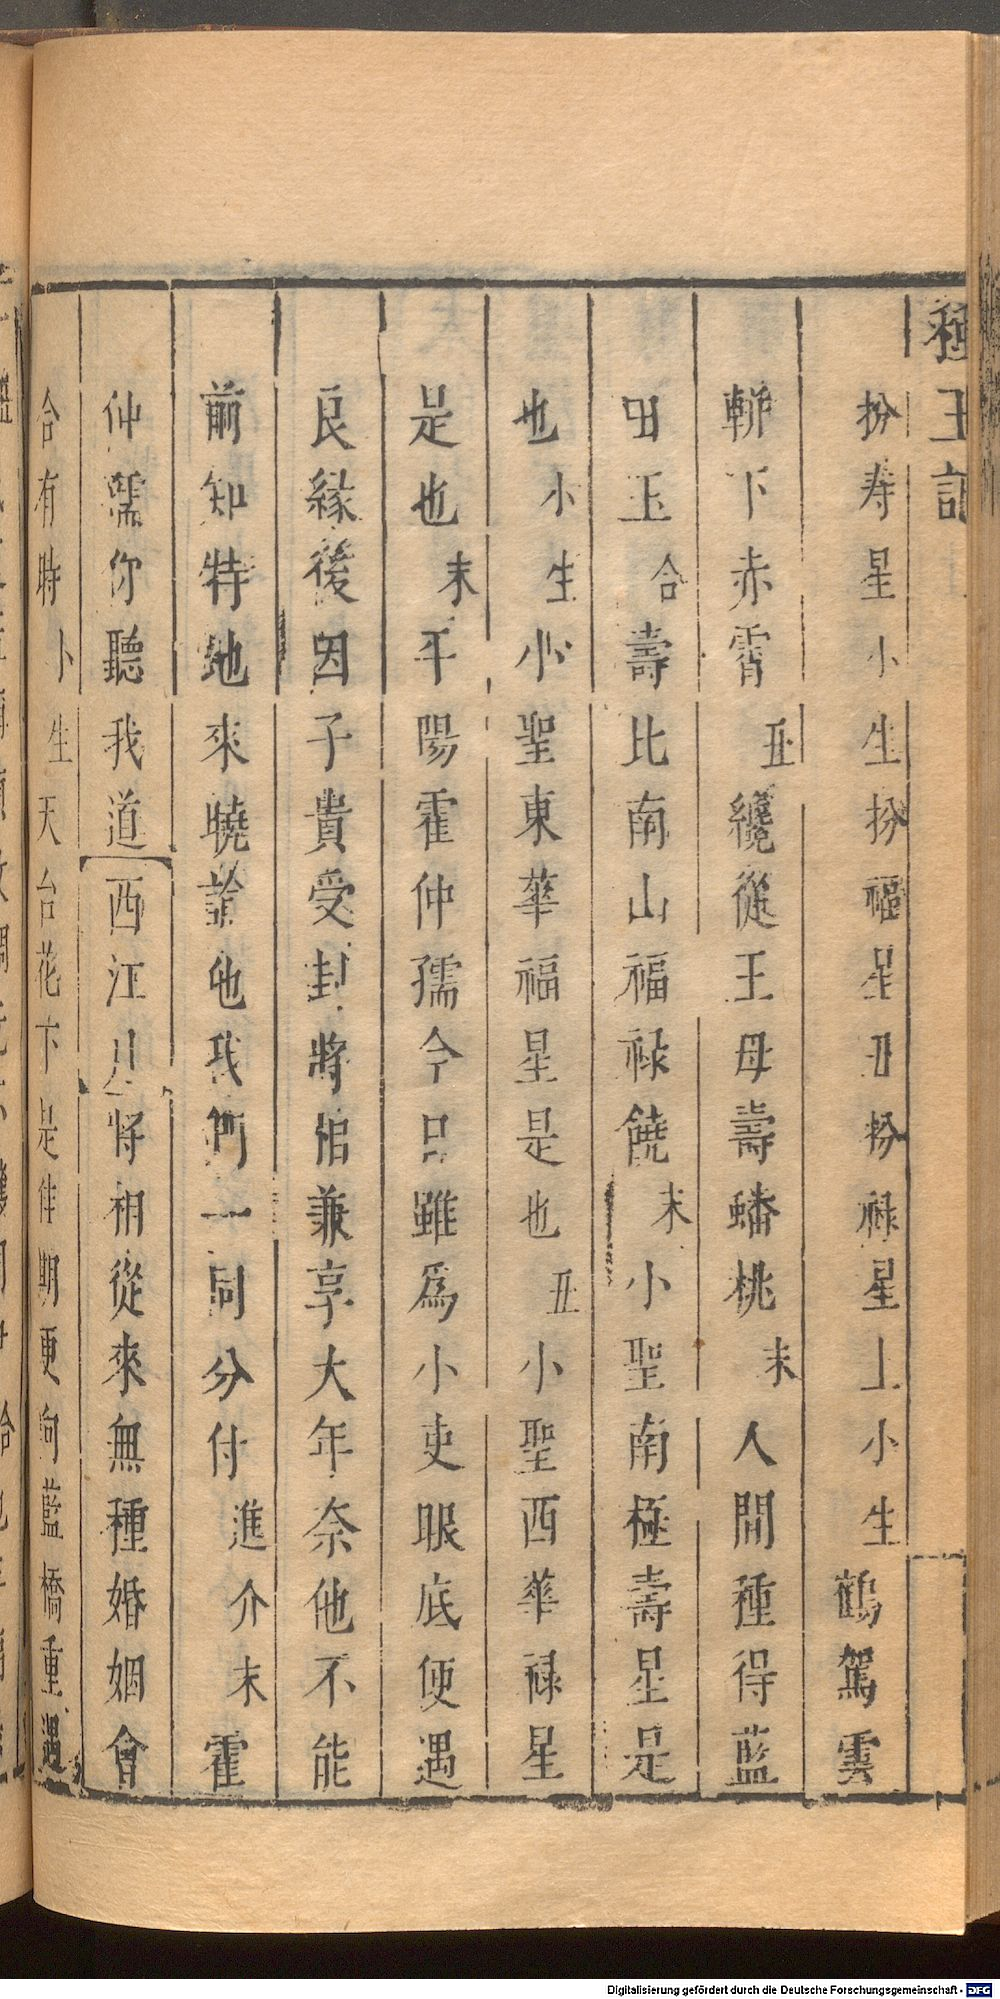 種玉記
扮寿星小生扮福星丑扮祿星上小生鶴駕雲
軿下赤霄丑纔從王母壽蟠桃末人間種得藍
田玉合壽比南山福祿饒末小聖南極壽星是
也小生小聖東華福星是也丑小聖西華祿星
是也末平陽霍仲孺今日雖爲小吏眼底便遇
良緣後因子貴受封將相兼享大年奈他不能
前知特地來曉諭他我們一同分付進介末霍
仲孺你聽我道西江月將相從來無種婚姻會
合有時小生天台花下是佳期更向藍橋重遇
Digitalisierung gefördert durch die Deutsche Forschungsgemeinschaft - DFG